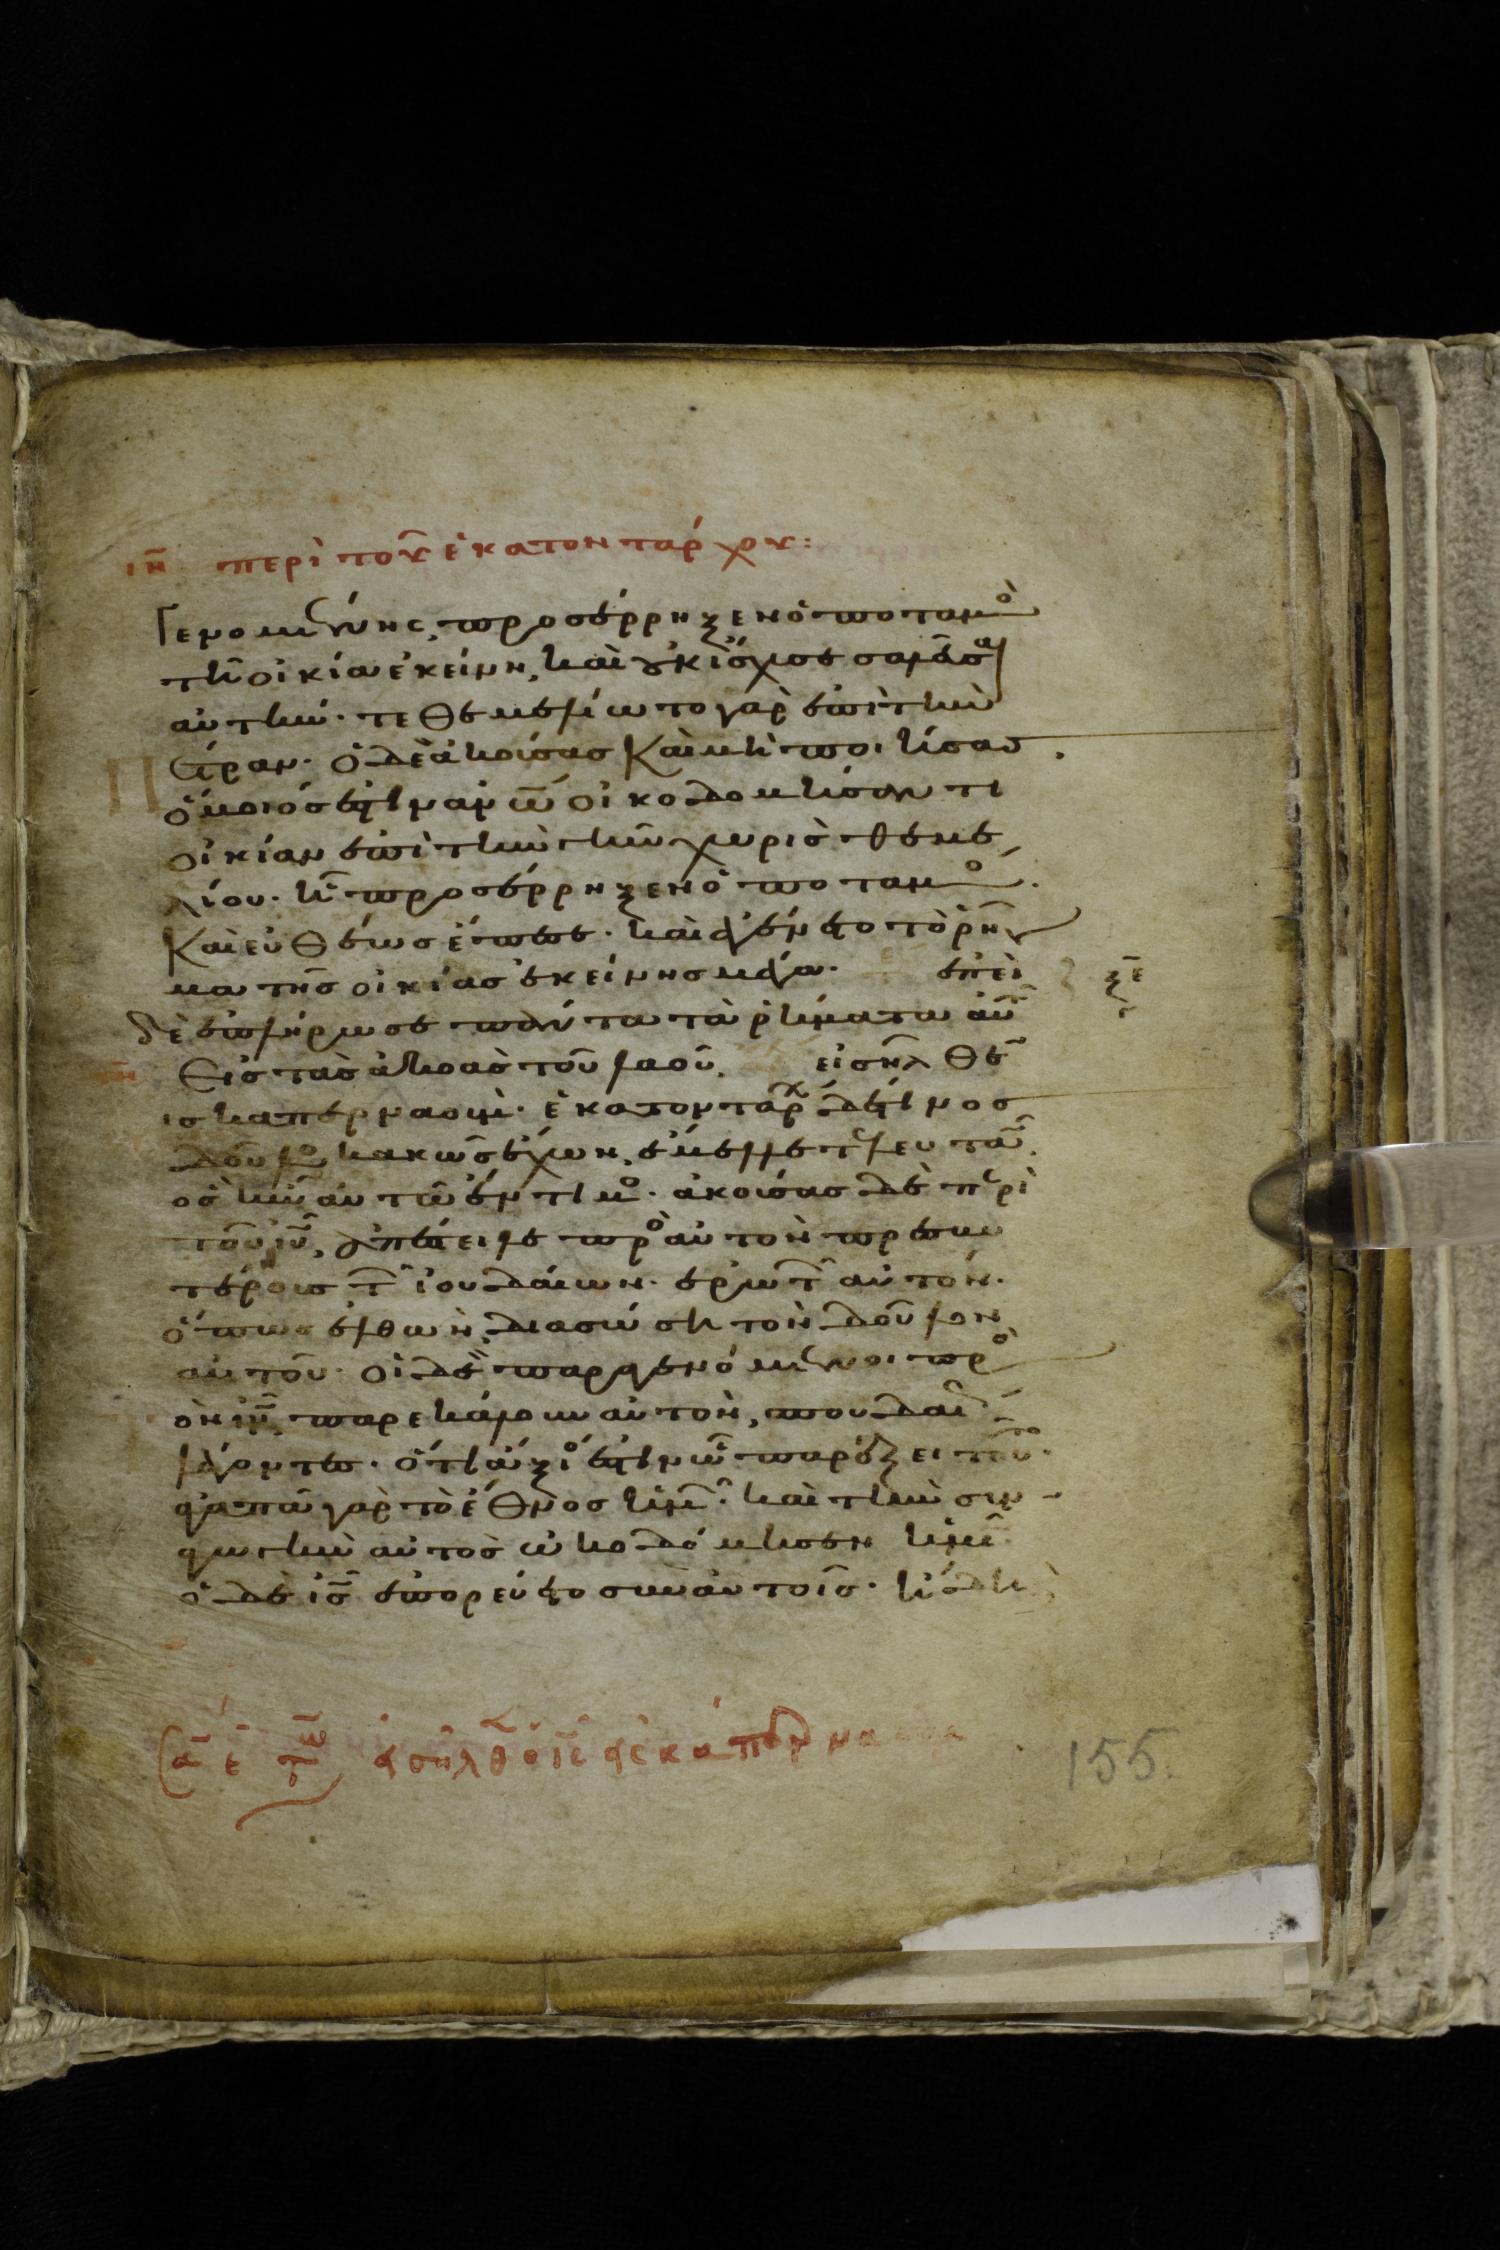 ιη περὶ τοῦ ἑκατοντάρχου:
Γενομένης, προσέρρηξεν ὁ ποταμὸ
τῆ οἰκία ἐκείνη, καὶ οὐκ ἴσχυσε σαλεῦσαι
αὐτήν· τεθεμελίωτο γὰρ ἐπὶ τὴν
πέτραν· ὁ δὲ ἀκούσας καὶ μὴ ποιήσας
ὅμοιός ἐστιν ἀνω οἰκοδομήσαντι
οἰκίαν ἐπὶ τὴν γῆν χωρὶς θεμε
λίου· ἧ προσέρρηξεν ὁ ποταμὸ.
Καὶ εὐθέως ἔπεσε· καὶ ἐγένετο τὸ ῥῆγ
μα τῆς οἰκίας ἐκείνης μέγα· ἐπεὶ
ξε
δὲ ἐπλήρωσε πάντα τὰ ῥήματα αὐτ
εἰς τὰς ἀκοὰς τοῦ λαοῦ, εἰσῆλθεν
εἰς καπερναούμ· ἑκατοντάρχ δέ τινος
δοῦλο κακῶς ἔχων, ἔμελλε τελευτᾶν,
ὃς ἦν αὐτῶ ἔντιμο· ἀκούσας δὲ περὶ
τοῦ ιυ, ἀπέστειλε πρὸ αὐτὸν πρεσβυ
τέρους τ ἰουδαίων· ἐρωτ αὐτόν·
ὅπως ἐλθὼν, διασώση τὸν δοῦλον
αὐτοῦ· οἱ δὲ παραγενόμενοι πρὸ
ὸν ιν, παρεκάλουν αὐτὸν, σπουδαί
λέγοντες· ὅτι ἄξιό ἐστιν ὧ παρέξει τοῦτο·
ἀγαπᾶ γὰρ τὸ ἔθνος ἡμ· καὶ τὴν συν
γωγὴν αὐτὸς ὠκοδόμησεν ἡμῖ
ὁ δὲ ις ἐπορεύετο σὺν αὐτοῖς· ἤδη
εἰσῆλθ ὁ ις εἰς καπερναουμ
155